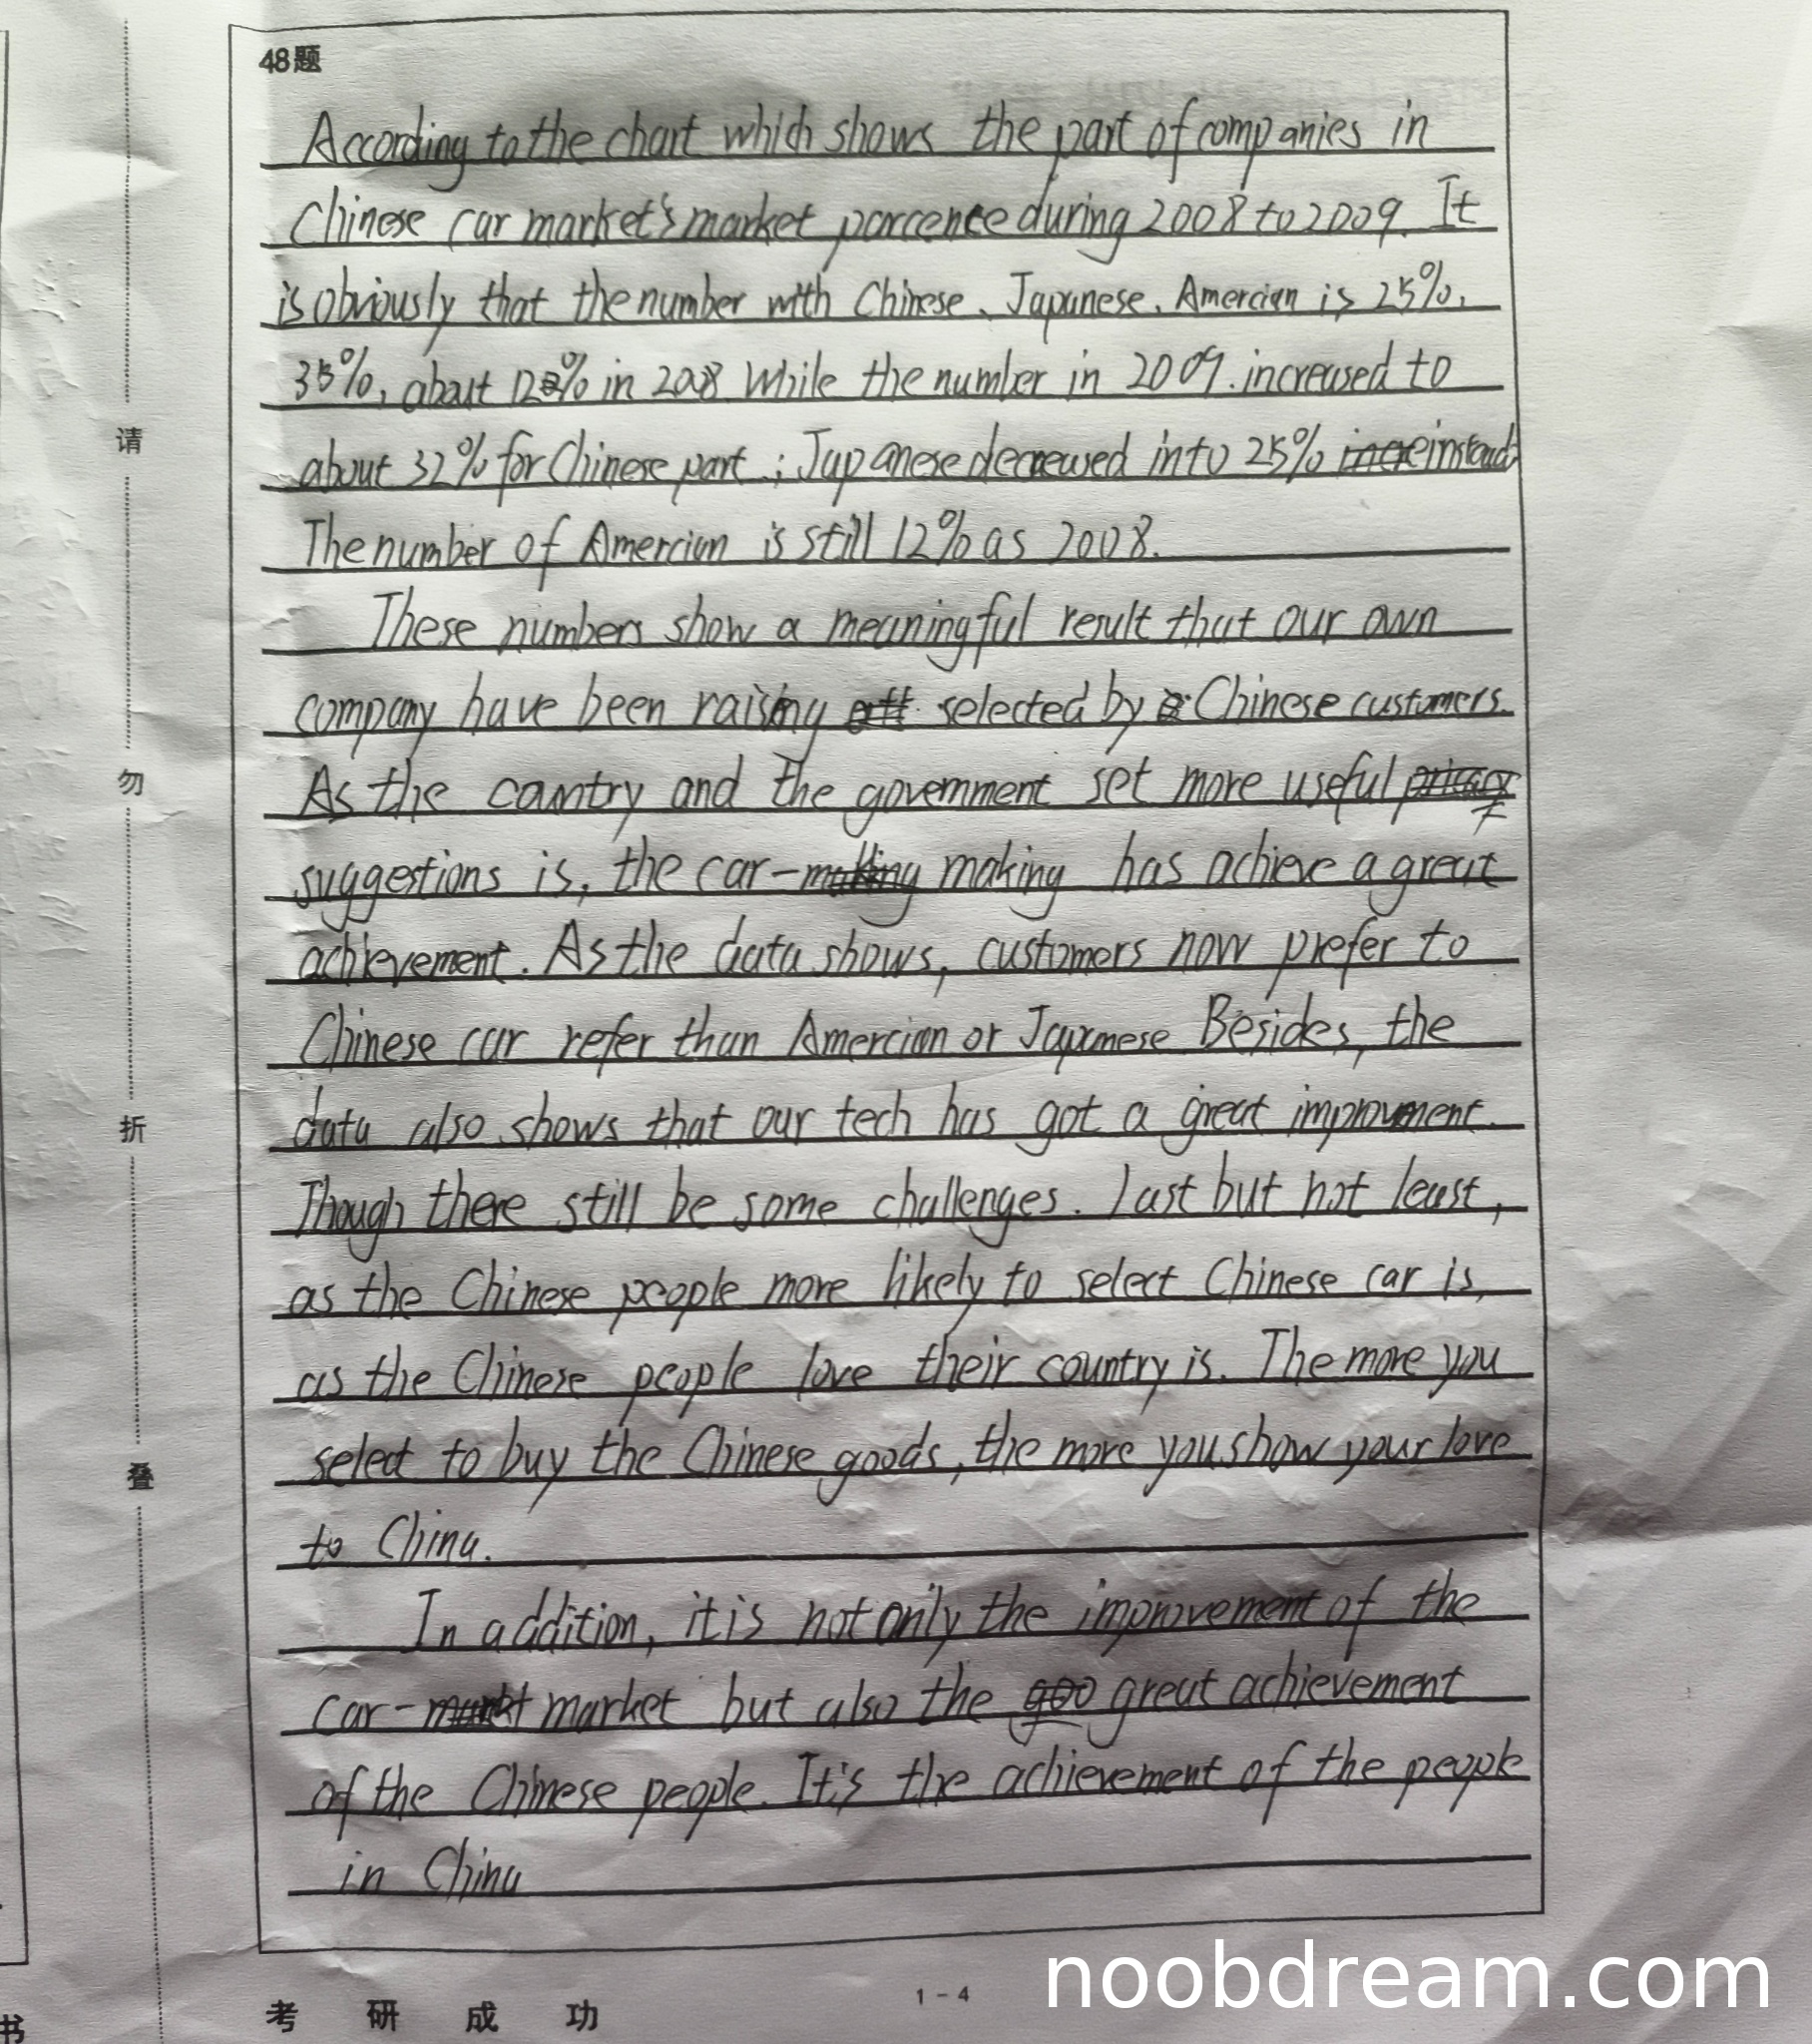 48题
According to the chart which shows the part of companies in
Chinese car market's market parcence during 2008 to 2009. It
is obviously that the number with Chinese、Japanese、Amercian is 25%,
35%, about 12% in 2008. While the number in 2009. increased to
about 32% for Chinese part ; Japanese decreased into 25% instead.
The number of Amercian is still 12% as 2008.
These numbers show a meaningful result that our own
company have been raising selected by Chinese customers.
As the cauntry and the government set more useful
suggestions is, the car-making has achieve a great
achievement. As the data shows, customers now prefer to
Chinese car refer than Amercian or Japanese. Besides, the
data also shows that our tech has got a great improvment.
Though there still be some challenges. Last but not least,
as the Chinese people more likely to select Chinese car is,
as the Chinese people love their country is. The more you
select to buy the Chinese goods, the more you show your love
to China.
In addition, it is not only the improvement of the
car-market but also the great achievement
of the Chinese people. It's the achievement of the people
in China
请
勿
折
叠
考研成功
1-4
书
noobdream.com